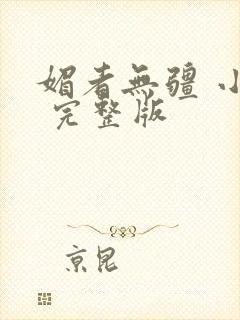 媚者無疆 小
完整版
京昆